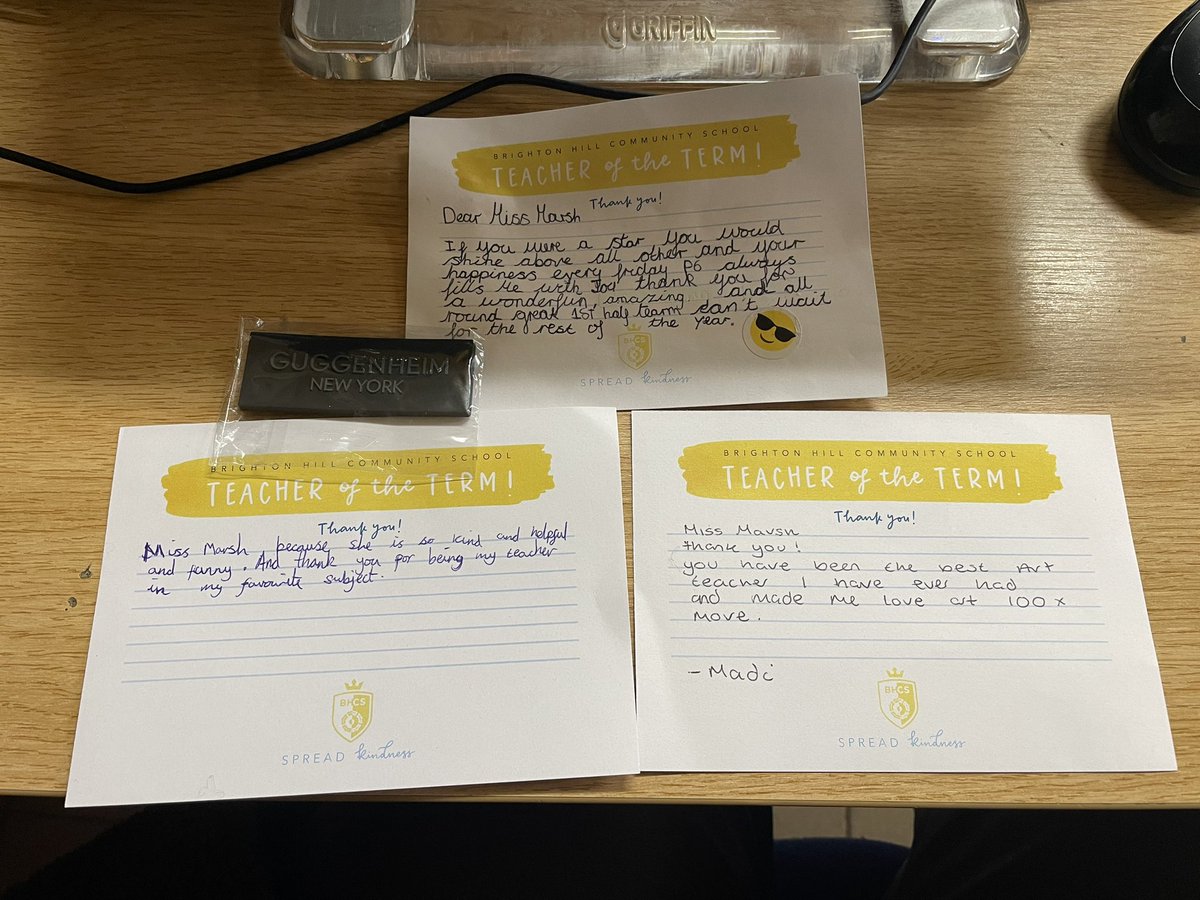 GRIFFIN
BRIGHTON HILL COMMUNITY SCHOOL
TEACHER of the TERM!
Thank you!
Dear Miss Marsh
If you were a star you would
shine above all other and your
happiness every friday P6 always
fills me with Joy thank you for
a wonderfun, amazing and all
round great 1st half tearm can't wait
for the rest of the year.
BHCS
SPREAD kindness
GUGGENHEIM
NEW YORK
BRIGHTON HILL COMMUNITY SCHOOL
TEACHER of the TERM!
Thank you!
Miss Marsh because she is so kind and helpful
and funny. And thank you for being my teacher
in my favourite subject.
BHCS
SPREAD kindness
BRIGHTON HILL COMMUNITY SCHOOL
TEACHER of the TERM!
Thank you!
Miss Marsh
thank you!
you have been the best Art
teacher I have ever had
and made me love art 100x
more.
- Madi
BHCS
SPREAD kindness